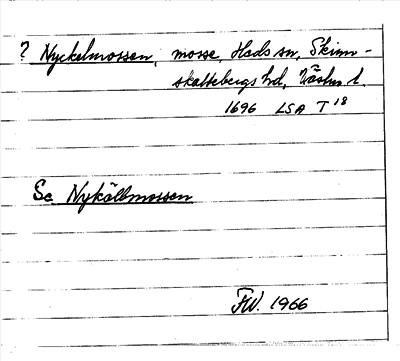 ? Nyckelmossen, mosse, Heds sn, Skinn-
skattebergs hd, Västm l.
1696 LSA T 18
Se Nykälbmossen
FW. 1966